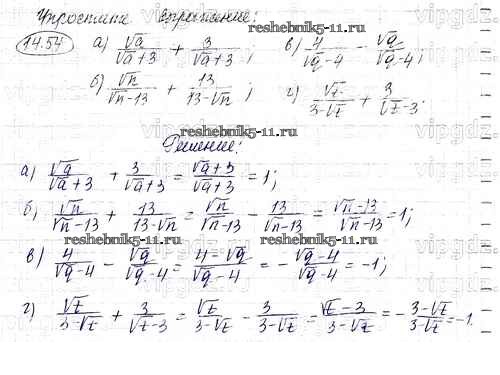 Упростите выражение:
reshebnik5-11.ru
14.54 а) √a/(√a+3) + 3/(√a+3); в) 4/(√q-4) - √q/(√q-4);
б) √n/(√n-13) + 13/(13-√n); г) √z/(3-√z) + 3/(√z-3).
reshebnik5-11.ru
Решение:
а) √a/(√a+3) + 3/(√a+3) = (√a+3)/(√a+3) = 1;
б) √n/(√n-13) + 13/(13-√n) = √n/(√n-13) - 13/(√n-13) = (√n-13)/(√n-13) = 1;
reshebnik5-11.ru reshebnik5-11.ru
в) 4/(√q-4) - √q/(√q-4) = (4-√q)/(√q-4) = -(√q-4)/(√q-4) = -1;
г) √z/(3-√z) + 3/(√z-3) = √z/(3-√z) - 3/(3-√z) = (√z-3)/(3-√z) = -(3-√z)/(3-√z) = -1.
vipgdz